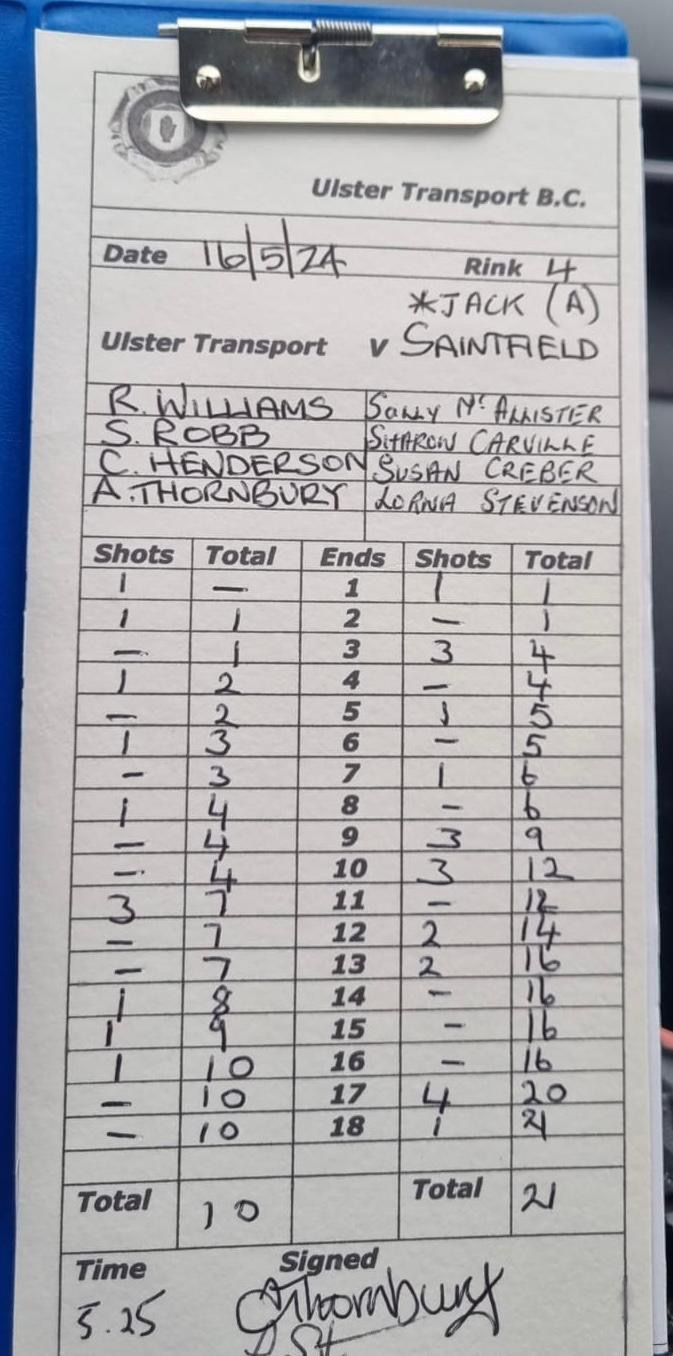 Ulster Transport B.C.
Date 16/5/24 Rink 4
*JACK (A)
Ulster Transport v SAINTFIELD
R. WILLIAMS SALLY McALLISTER
S. ROBB SHARON CARVILLE
C. HENDERSON SUSAN CREBER
A. THORNBURY LORNA STEVENSON
Shots Total Ends Shots Total
1 — 1 1 1
1 1 2 — 1
— 1 3 3 4
1 2 4 — 4
— 2 5 1 5
1 3 6 — 5
— 3 7 1 6
1 4 8 — 6
— 4 9 3 9
— 4 10 3 12
3 7 11 — 12
— 7 12 2 14
— 7 13 2 16
1 8 14 — 16
1 9 15 — 16
1 10 16 — 16
— 10 17 4 20
— 10 18 1 21
Total 10 Total 21
Time Signed
5.25 Thornbury